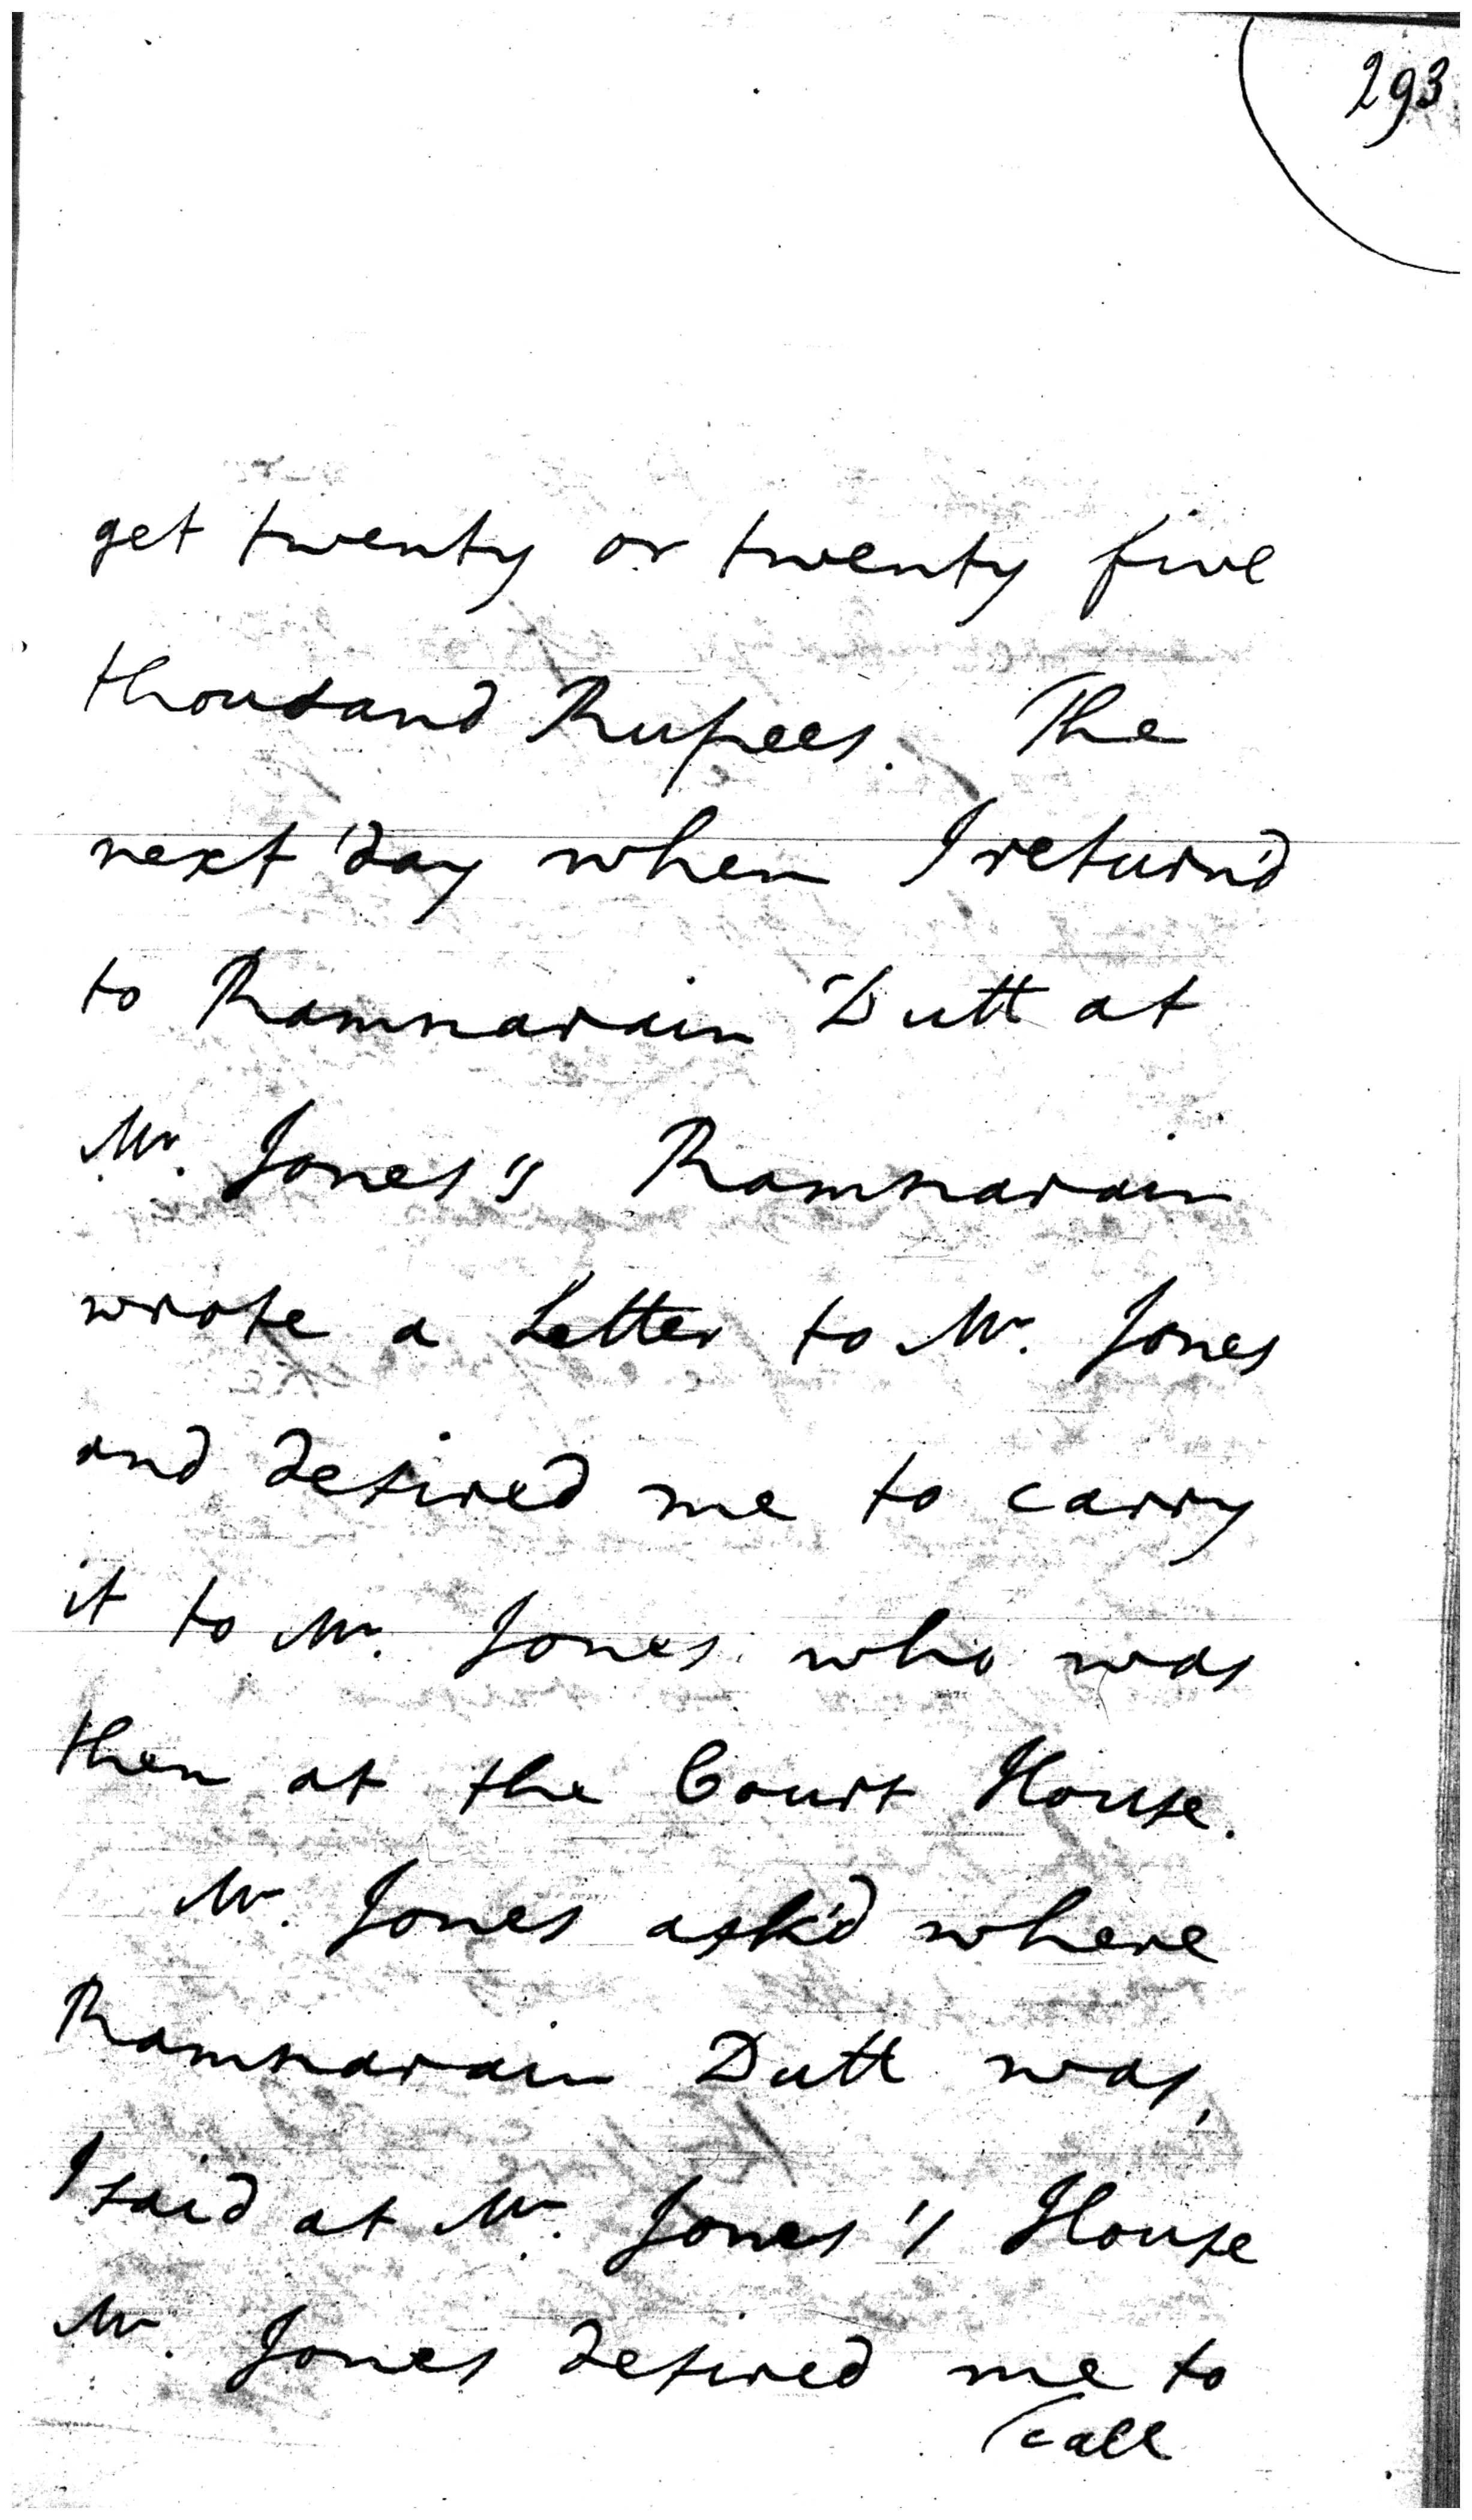 293
get twenty or twenty five
thousand Rupees. The
next day when I return'd
to Ramnarain Dutt at
Mr. Jones's Ramnarain
wrote a Letter to Mr. Jones
and desired me to carry
it to Mr. Jones who was
then at the Court House.
Mr. Jones ask'd where
Ramnarain Dutt was,
I said at Mr. Jones's House
Mr. Jones desired me to
call